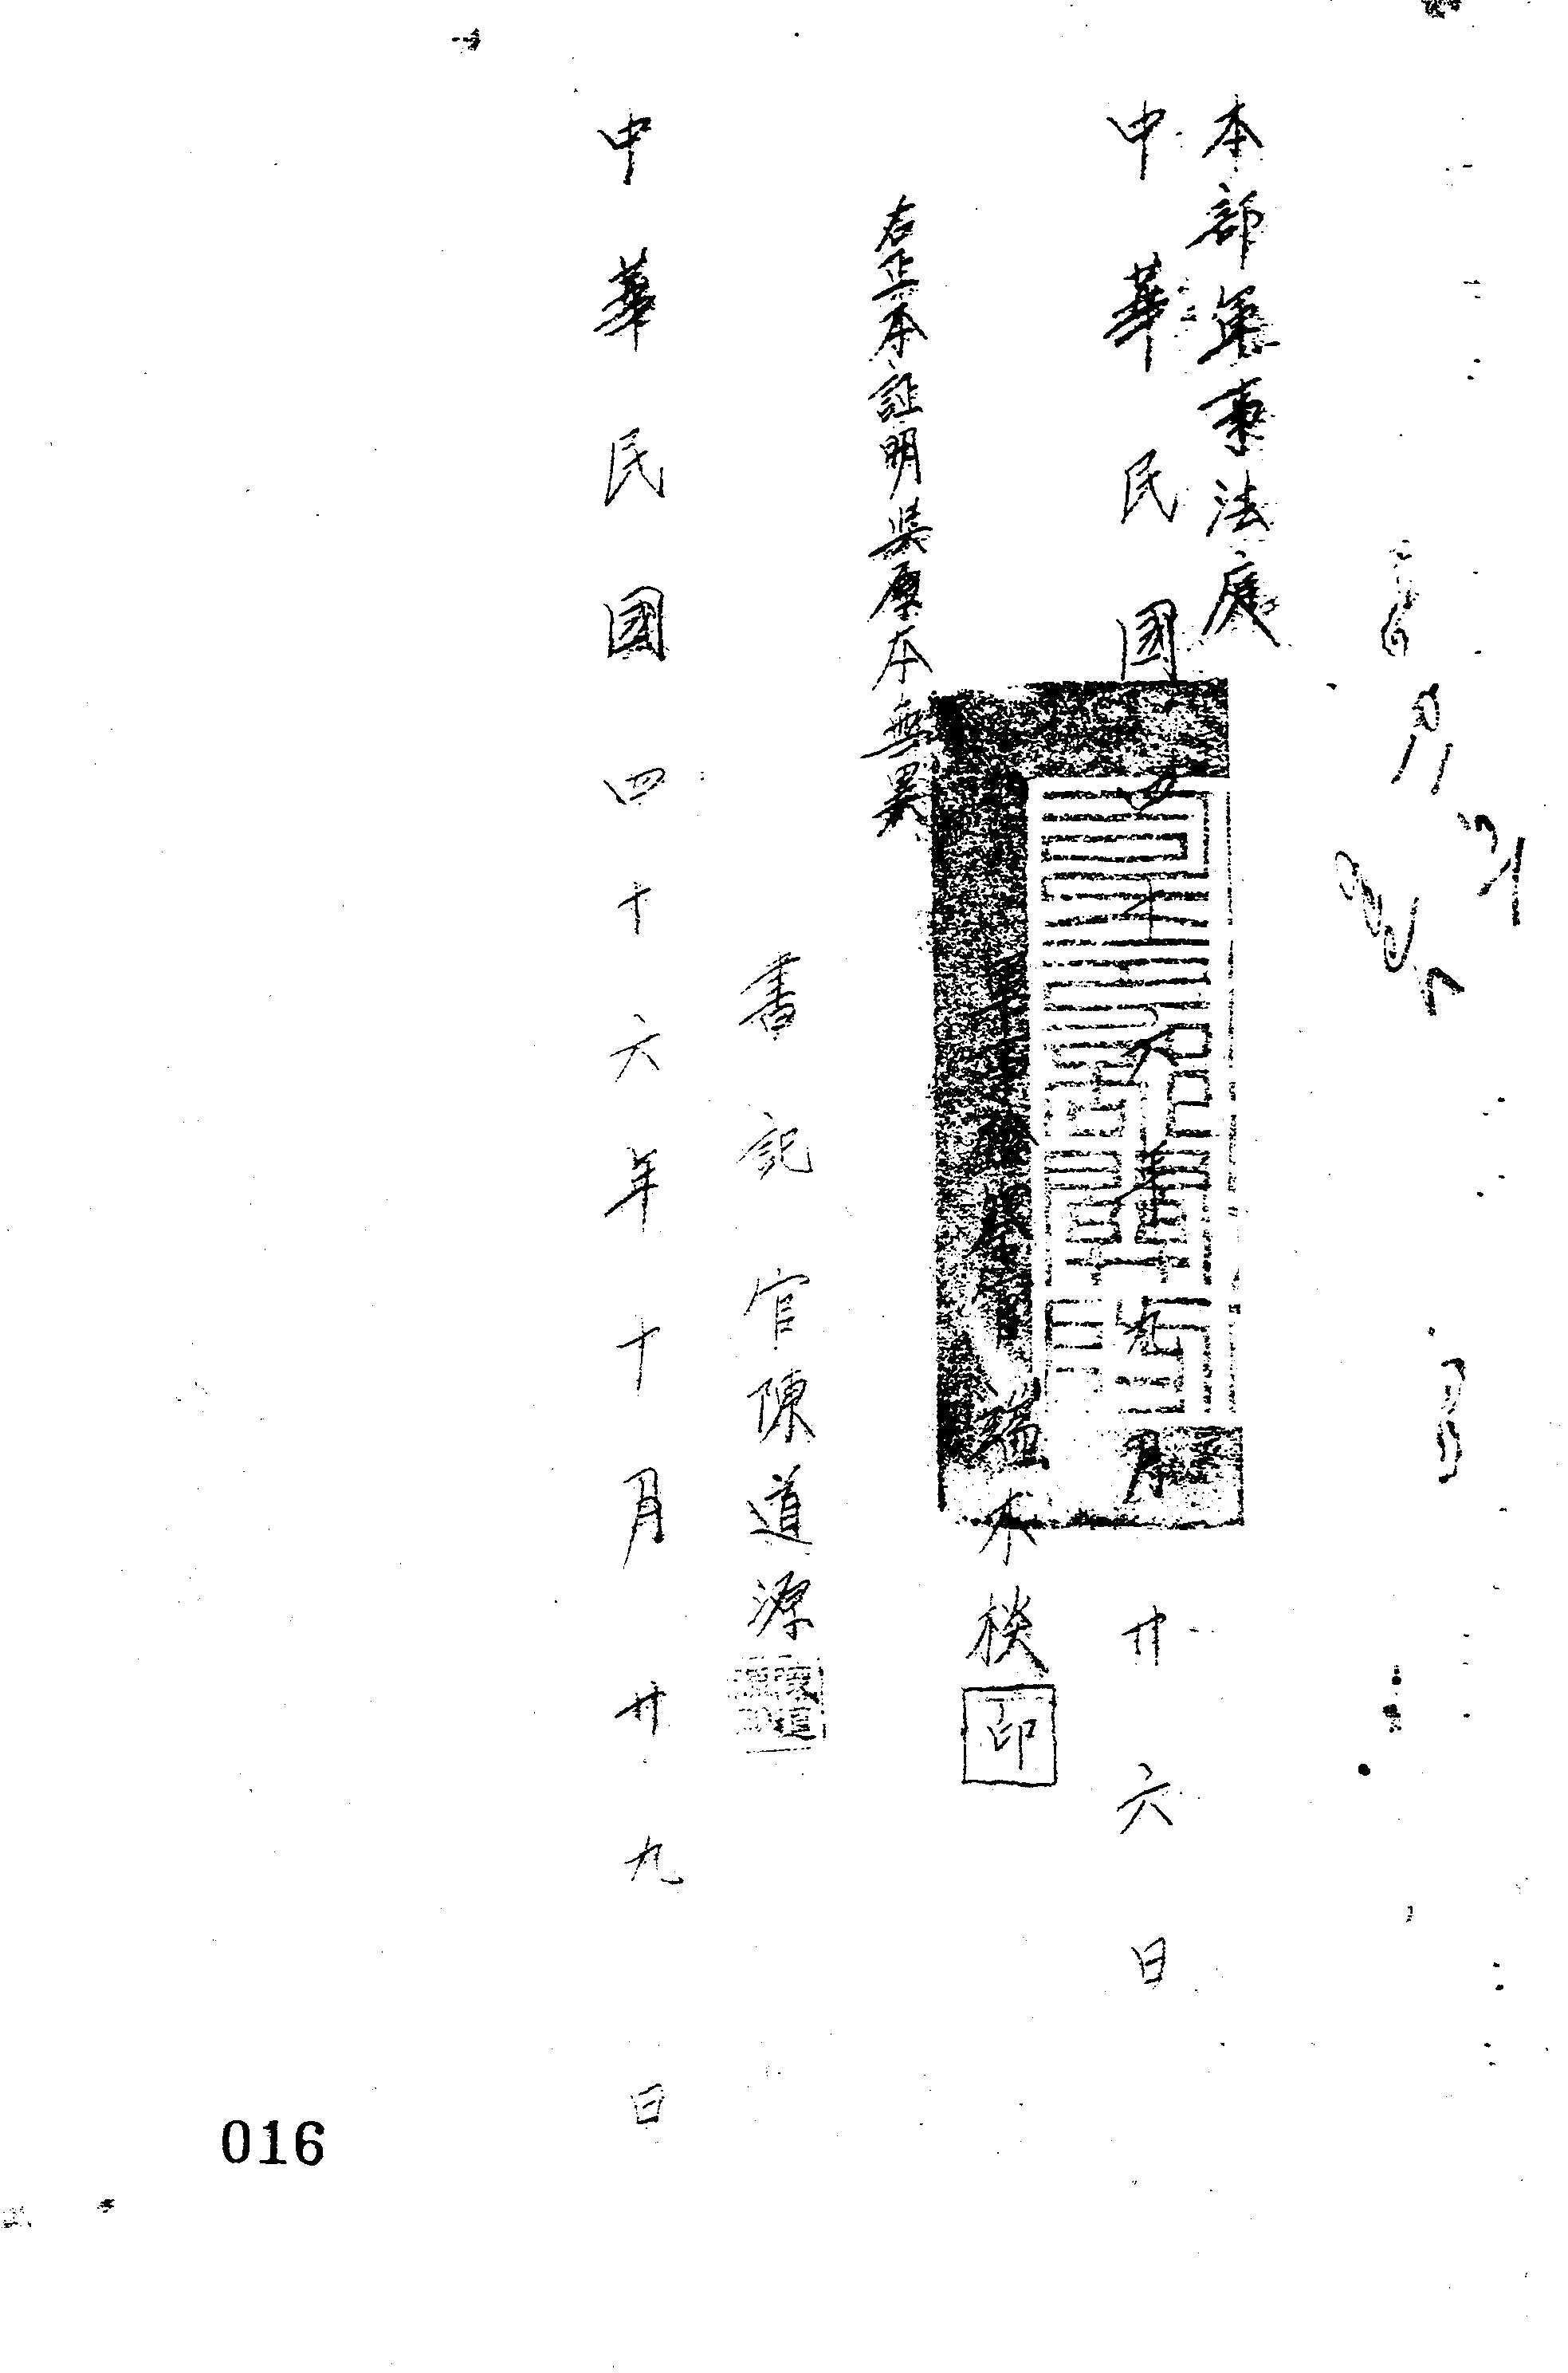 本部軍事法庭
中華民國四十六年九月廿六日
軍事檢察官 端木棪 印
右正本証明與原本無異
書記官陳道源
中華民國四十六年十月廿九日
016